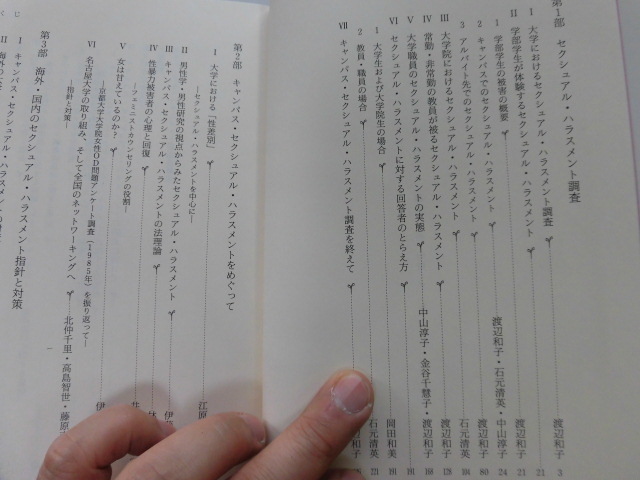 第1部 セクシュアル・ハラスメント調査
I 大学におけるセクシュアル・ハラスメント調査 渡辺和子 3
II 学部学生が体験するセクシュアル・ハラスメント 21
1 学部学生の被害の概要 渡辺和子 21
2 キャンパスでのセクシュアル・ハラスメント 渡辺和子・石元清英・中山淳子 24
3 アルバイト先でのセクシュアル・ハラスメント 渡辺和子 80
III 大学院におけるセクシュアル・ハラスメント 石元清英 104
IV 常勤・非常勤の教員が被るセクシュアル・ハラスメント 渡辺和子 128
V 大学職員のセクシュアル・ハラスメントの実態 中山淳子・金谷千慧子・渡辺和子 168
VI セクシュアル・ハラスメントに対する回答者のとらえ方 191
1 大学生および大学院生の場合 岡田和美 191
2 教員・職員の場合 石元清英 221
VII キャンパス・セクシュアル・ハラスメント調査を終えて
第2部 キャンパス・セクシュアル・ハラスメントをめぐって
I 大学における「性差別」
―セクシュアル・ハラスメントを中心に― 江原
II 男性学・男性研究の視点からみたセクシュアル・ハラスメント 伊
III キャンパス・セクシュアル・ハラスメントの法理論
IV 性暴力被害者の心理と回復
―フェミニストカウンセリングの役割― 井
V 女は甘えているのか?
―京都大学大学院女性OD問題アンケート調査(1985年)を振り返って― 伊
VI 名古屋大学の取り組み、そして全国のネットワーキングへ 北仲千里・高島智世・藤原
―指針と対策―
第3部 海外・国内のセクシュアル・ハラスメント指針と対策
I キャンパス・セクシュアル・ハラスメントの
II 海外の